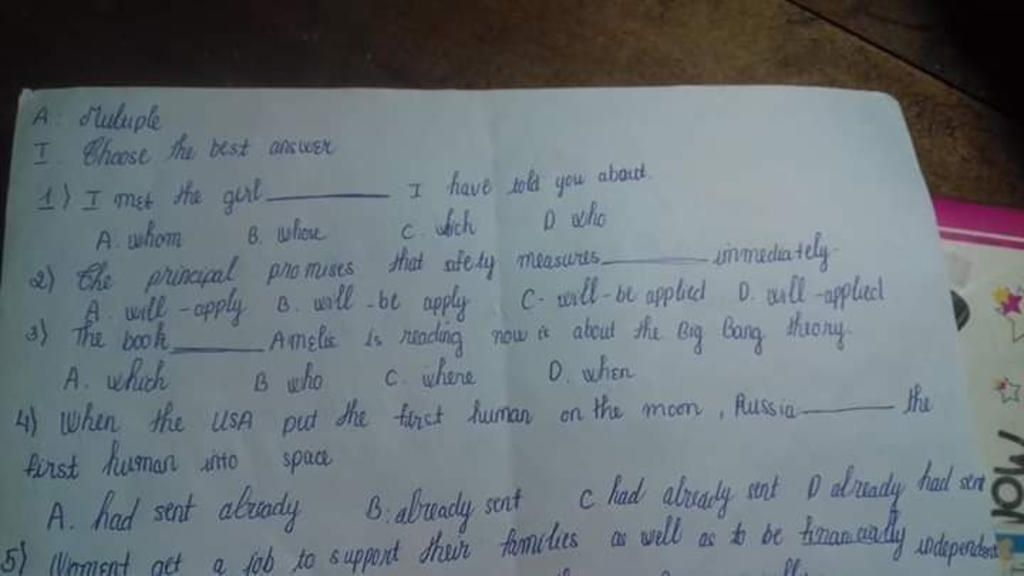 A: Muluple
I. Choose the best answer
1) I met the girl ________ I have told you about.
A. whom B. whose C. which D. who
2) The principal promises that safety measures ________ immediately.
A. will - apply B. will - be apply C. will - be applied D. will - applied
3) The book ________ Amelie is reading now is about the Big Bang theory.
A. which B who C. where D. when
4) When the USA put the first human on the moon, Russia ________ the
first human into space
A. had sent already B. already sent C had already sent D already had sent
5) Woment get a job to support their families as well as to be financially independent
NOM